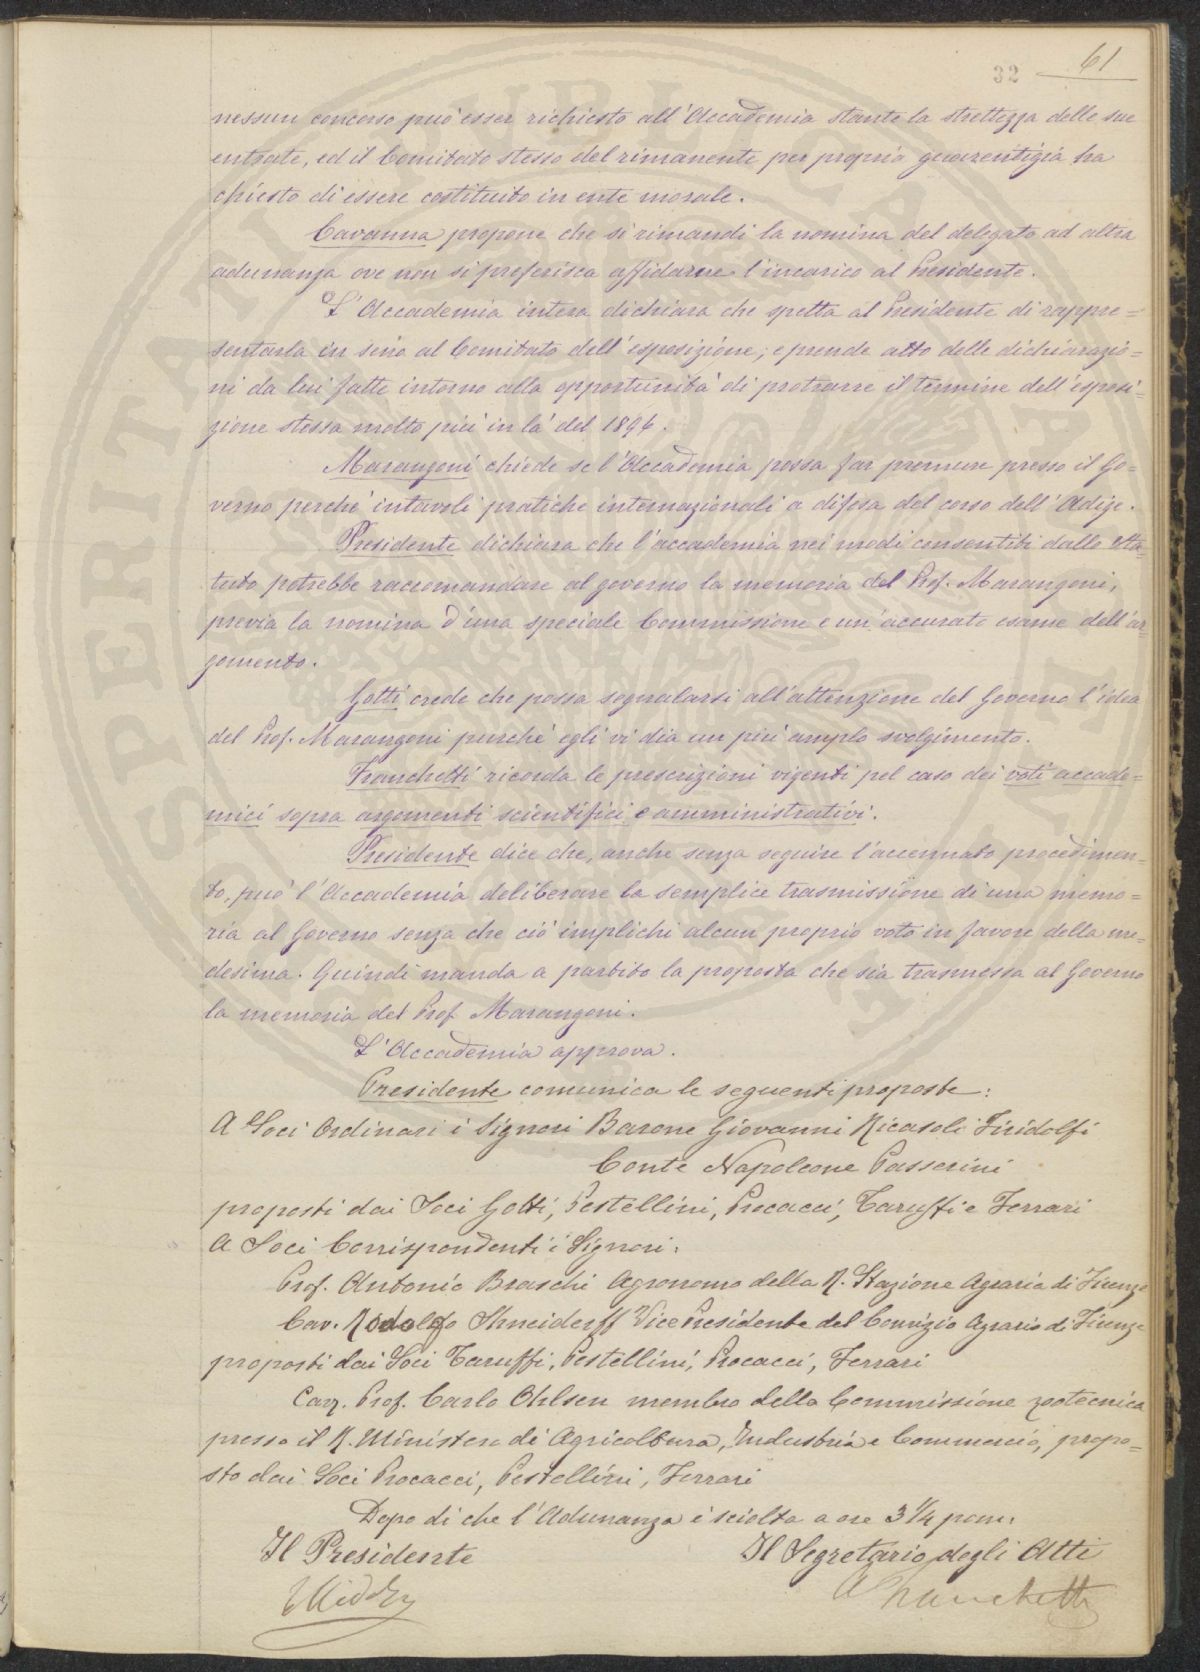 32 61
nessun concorso può esser richiesto all'Accademia stante la strettezza delle sue
entrate, ed il Comitato stesso del rimanente per propria guarentigia ha
chiesto di essere costituito in ente morale.
Cavanna propone che si rimandi la nomina del delegato ad altra
adunanza ove non si preferisca affidarne l'incarico al Presidente.
L'Accademia intera dichiara che spetta al Presidente di rappre=
sentarla in seno al Comitato dell'esposizione; e prende atto delle dichiarazio=
ni da lui fatte intorno alla opportunità di protrarre il termine dell'esposi=
zione stessa molto più in là del 1894.
Marangoni chiede se l'Accademia possa far premure presso il Go=
verno perché intavoli pratiche internazionali a difesa del corso dell'Adige.
Presidente dichiara che l'accademia nei modi consentiti dallo Sta=
tuto potrebbe raccomandare al governo la memoria del Prof. Marangoni,
previa la nomina d'una speciale Commissione e un'accurato esame dell'ar=
gomento.
Gotti crede che possa segnalarsi all'attenzione del Governo l'idea
del Prof. Marangoni purché egli vi dia un più amplo svolgimento.
Franchetti ricorda le prescrizioni vigenti pel caso dei voti accade=
mici sopra argomenti scientifici e amministrativi.
Presidente dice che, anche senza seguire l'accennato procedimen=
to, può l'Accademia deliberare la semplice trasmissione di una memo=
ria al Governo senza che ciò implichi alcun proprio voto in favore della me=
desima. Quindi manda a partito la proposta che sia trasmessa al Governo
la memoria del Prof. Marangoni.
L'Accademia approva.
Presidente comunica le seguenti proposte:
A Soci Ordinari i Signori Barone Giovanni Ricasoli Firidolfi
Conte Napoleone Passerini
proposti dai Soci Gotti, Pestellini, Procacci, Taruffi e Ferrari
A Soci Corrispondenti i Signori:
Prof. Antonio Braschi Agronomo della R. Stazione Agraria di Firenze
Cav. Rodolfo Shneiderff Vice Presidente del Comizio Agrario di Firenze
proposti dai Soci Taruffi, Pestellini, Procacci, Ferrari
Cav. Prof. Carlo Ohlsen membro della Commissione zootecnica
presso il R. Ministero di Agricoltura, Industria e Commercio, propo=
sto dai Soci Procacci, Pestellini, Ferrari
Dopo di che l'Adunanza è sciolta a ore 3 1/4 pom:
Il Presidente Il Segretario degli Atti
A Franchetti
SPERITATI PUBLICA